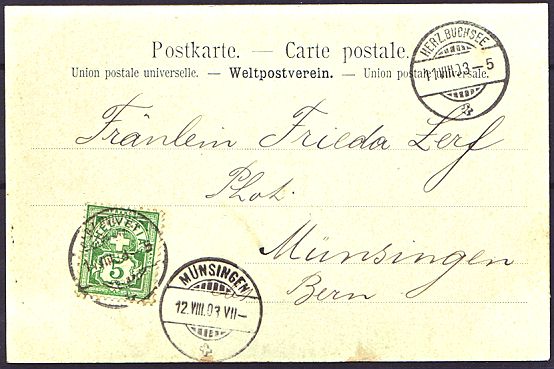 Postkarte. — Carte postale.
Union postale universelle. — Weltpostverein. — Union postale universale.
HERZ.BUCHSEE
11.VIII.03—5
Fräulein Frieda Zerf
Phot.
Münsingen
Bern
HELVETIA
5
MÜNSINGEN
12.VIII.03 VII—